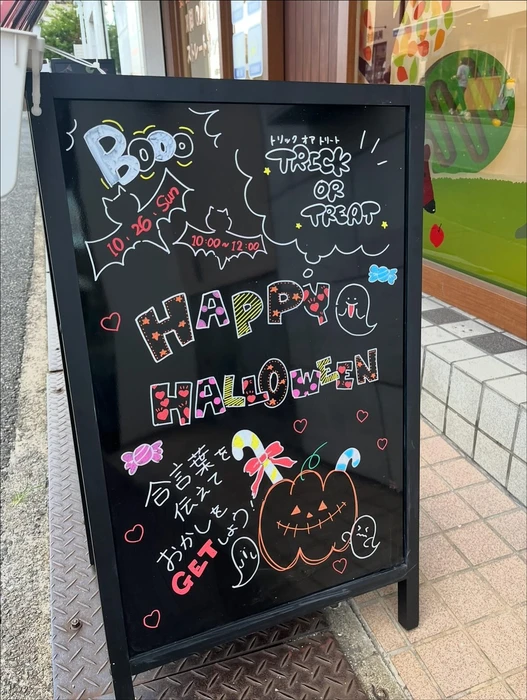 BOOO
トリック オア トリート
TRICK
OR
TREAT
10.26.Sun
10:00~12:00
HAPPY
HALLOWEEN
合言葉を
伝えて
おかしを
GETしよう!